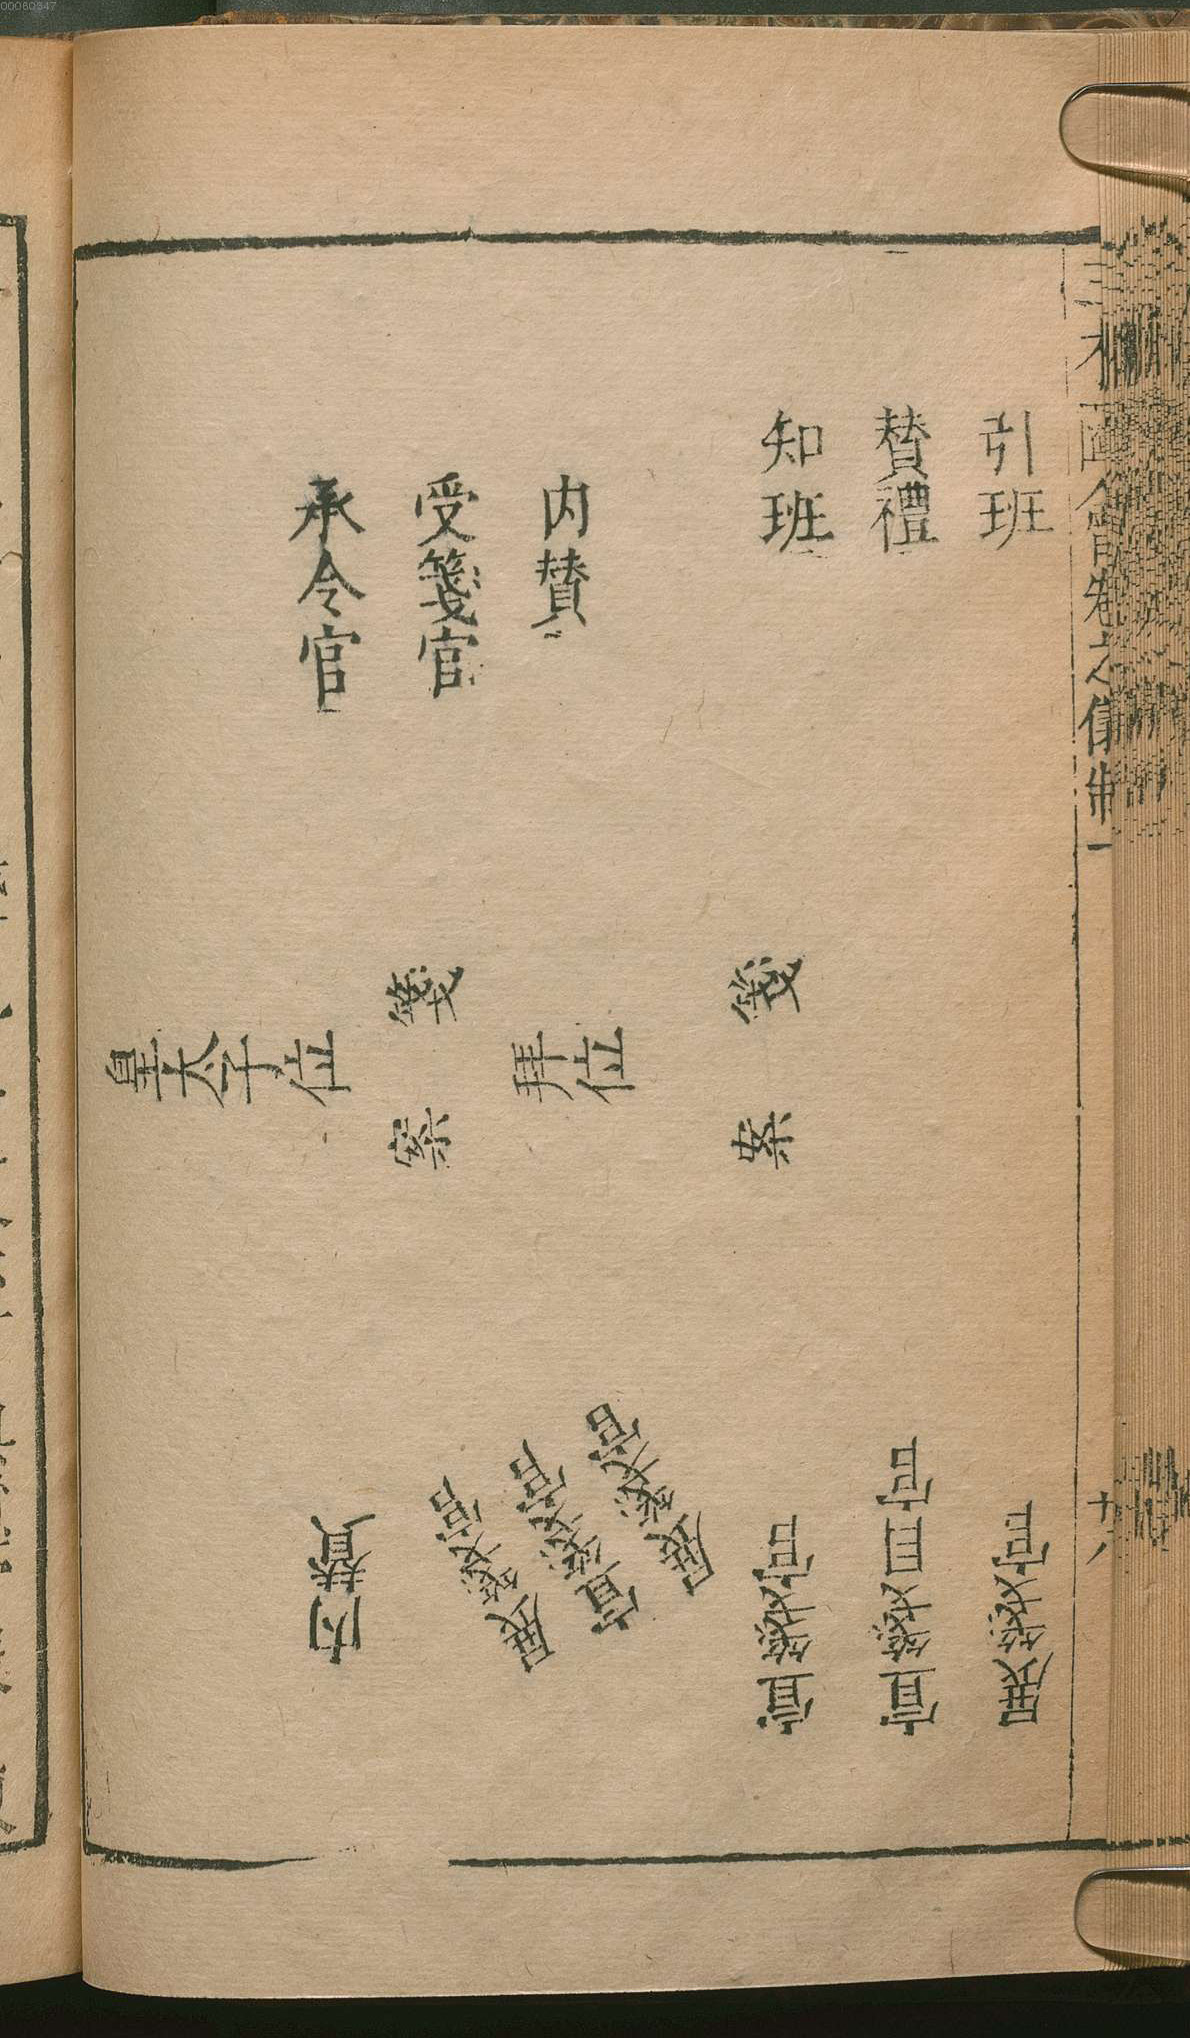 00060347
三才圖會卷之儀制一
十八
引班
賛禮
知班
内賛
受箋官
承令官
箋案
拜位
箋案
皇太子位
展箋官
宣箋目官
宣箋官
展箋官
宣箋官
展箋官
内賛